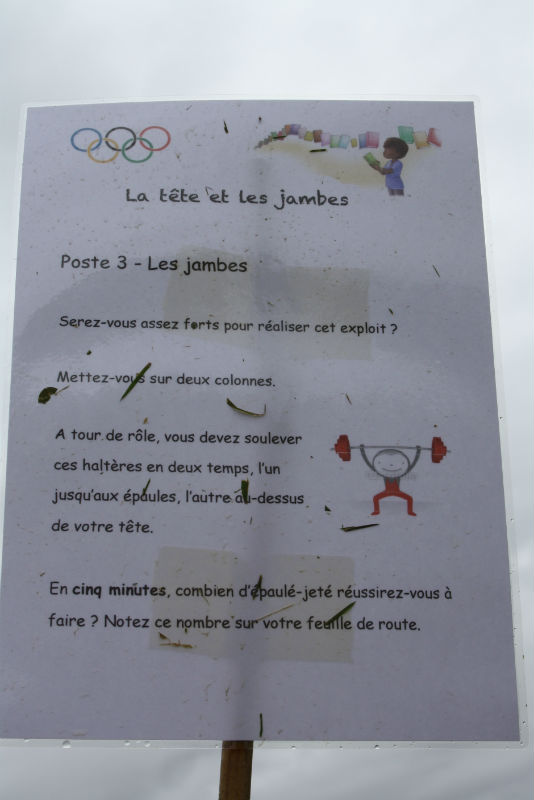 La tête et les jambes
Poste 3 - Les jambes
Serez-vous assez forts pour réaliser cet exploit ?
Mettez-vous sur deux colonnes.
A tour de rôle, vous devez soulever
ces haltères en deux temps, l'un
jusqu'aux épaules, l'autre au-dessus
de votre tête.
En cinq minutes, combien d'épaulé-jeté réussirez-vous à
faire ? Notez ce nombre sur votre feuille de route.